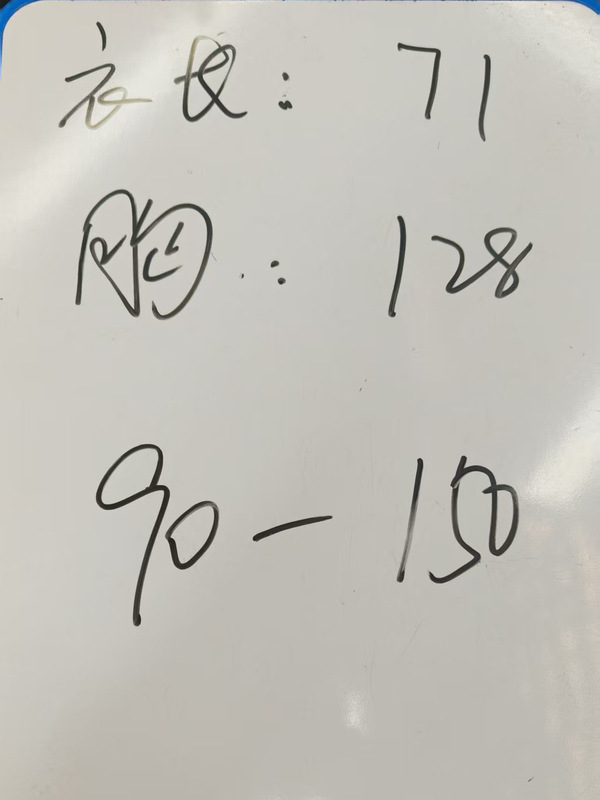 衣长: 71
胸: 128
90-150